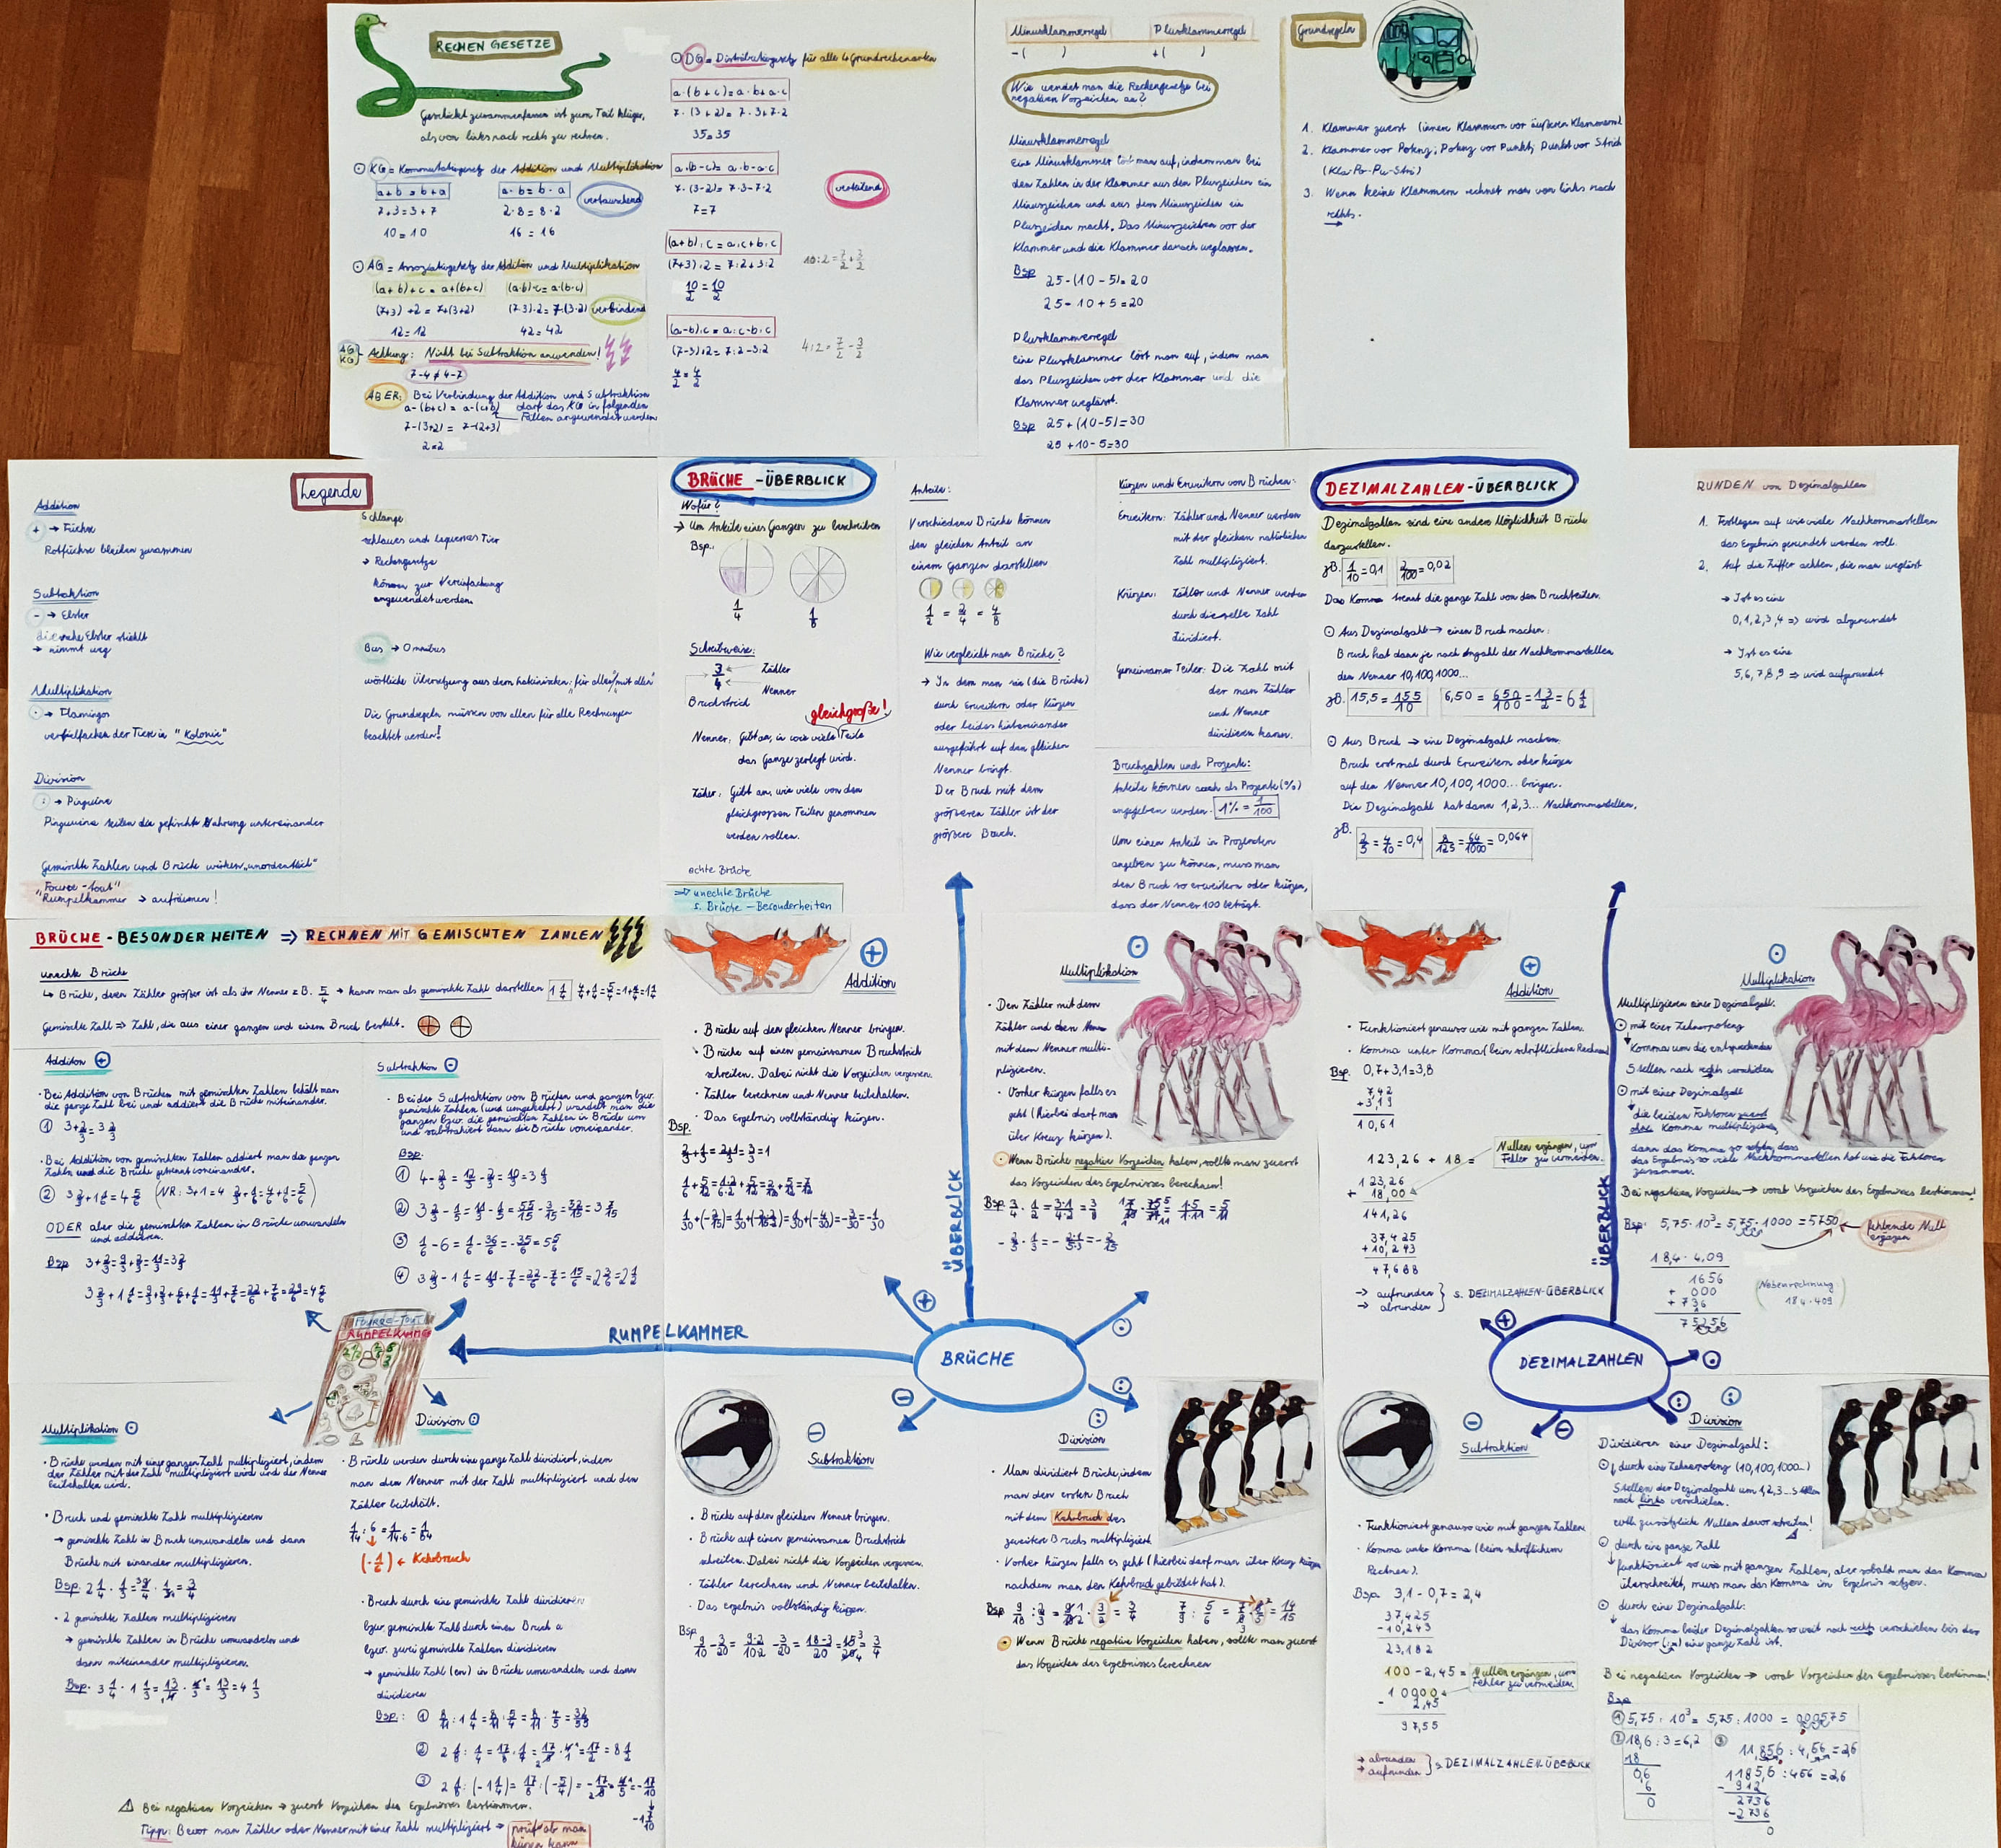 RECHEN GESETZE
Geschickt zusammenfassen ist zum Teil klüger,
als von links nach rechts zu rechnen.
KG = Kommutativgesetz der Addition und Multiplikation
a+b = b+a
a·b = b·a
vertauschend
7+3 = 3+7
2·8 = 8·2
10 = 10
16 = 16
AG = Assoziativgesetz der Addition und Multiplikation
(a+b)+c = a+(b+c)
(a·b)·c = a·(b·c)
(7+3)+2 = 7+(3+2)
(7·3)·2 = 7·(3·2)
verbindend
12 = 12
42 = 42
AG
KG
Achtung: Nicht bei Subtraktion anwenden!
7-4 ≠ 4-7
ABER: Bei Verbindung der Addition und Subtraktion
a-(b+c) = a-(c+b) darf das KG in folgenden
Fällen angewendet werden
7-(3+2) = 7-(2+3)
2=2
DG = Distributivgesetz für alle 4 Grundrechenarten
a·(b+c) = a·b+a·c
7·(3+2) = 7·3+7·2
35 = 35
a·(b-c) = a·b-a·c
7·(3-2) = 7·3-7·2
7=7
verteilend
(a+b):c = a:c+b:c
(7+3):2 = 7:2+3:2
10:2 = 7/2 + 3/2
10/2 = 10/2
(a-b):c = a:c-b:c
(7-3):2 = 7:2-3:2
4:2 = 7/2 - 3/2
4/2 = 4/2
Minusklammerregel
Plusklammerregel
-( )
+( )
Wie wendet man die Rechengesetze bei
negativen Vorzeichen an?
Minusklammerregel
Eine Minusklammer löst man auf, indem man bei
den Zahlen in der Klammer aus den Pluszeichen ein
Minuszeichen und aus dem Minuszeichen ein
Pluszeichen macht. Das Minuszeichen vor der
Klammer und die Klammer danach weglassen.
Bsp
25-(10-5) = 20
25-10+5 = 20
Plusklammerregel
Eine Plusklammer löst man auf, indem man
das Pluszeichen vor der Klammer und die
Klammer weglässt.
Bsp 25+(10-5) = 30
25+10-5 = 30
Grundregeln
1. Klammer zuerst (innere Klammern vor äußeren Klammern)
2. Klammer vor Potenz; Potenz vor Punkt; Punkt vor Strich
(Kla-Po-Pu-Stri)
3. Wenn keine Klammern rechnet man von links nach
rechts.
Legende
Addition
+ → Füchse
Rotfüchse bleiben zusammen
Subtraktion
- → Elster
stiehlt
→ nimmt weg
Multiplikation
· → Flamingos
vervielfachen der Tiere in "Kolonie"
Division
: → Pinguine
Pinguine teilen die gefischte Nahrung untereinander
Gemischte Zahlen und Brüche wirken „unordentlich"
"Fourre-tout"
"Rumpelkammer → aufräumen!
Schlange
schlaues und bequemes Tier
→ Rechengesetze
können zur Vereinfachung
angewendet werden.
Bus → Omnibus
wörtliche Übersetzung aus dem Lateinischen: „für alle/mit allen"
Die Grundregeln müssen von allen für alle Rechnungen
beachtet werden!
BRÜCHE -ÜBERBLICK
Wofür?
→ Um Anteile eines Ganzen zu beschreiben
Bsp.:
1/4
1/8
Schreibweise:
3/4
Zähler
Nenner
Bruchstrich
gleichgroße!
Nenner: Gibt an, in wie viele Teile
das Ganze zerlegt wird.
Zähler: Gibt an, wie viele von den
gleichgrossen Teilen genommen
werden sollen.
echte Brüche
⇒ unechte Brüche
s. Brüche - Besonderheiten
Anteile:
Verschiedene Brüche können
den gleichen Anteil an
einem Ganzen darstellen
1/2 = 2/4 = 4/8
Wie vergleicht man Brüche?
→ In dem man sie (die Brüche)
durch Erweitern oder Kürzen
oder beides hintereinander
ausgeführt auf den gleichen
Nenner bringt.
Der Bruch mit dem
größeren Zähler ist der
größere Bruch.
Kürzen und Erweitern von Brüchen:
Erweitern: Zähler und Nenner werden
mit der gleichen natürlichen
Zahl multipliziert.
Kürzen: Zähler und Nenner werden
durch dieselbe Zahl
dividiert.
Gemeinsamer Teiler: Die Zahl mit
der man Zähler
und Nenner
dividieren kann.
Bruchzahlen und Prozente:
Anteile können auch als Prozente (%)
angegeben werden 1% = 1/100
Um einen Anteil in Prozenten
angeben zu können, muss man
den Bruch so erweitern oder kürzen,
dass der Nenner 100 beträgt.
DEZIMALZAHLEN-ÜBERBLICK
Dezimalzahlen sind eine andere Möglichkeit Brüche
darzustellen.
zB. 1/10 = 0,1 2/100 = 0,02
Das Komma trennt die ganze Zahl von den Bruchteilen.
Aus Dezimalzahl → einen Bruch machen:
Bruch hat dann je nach Anzahl der Nachkommastellen
den Nenner 10, 100, 1000...
zB. 15,5 = 155/10 6,50 = 650/100 = 13/2 = 6 1/2
Aus Bruch → eine Dezimalzahl machen
Bruch erstmal durch Erweitern oder Kürzen
auf den Nenner 10, 100, 1000... bringen.
Die Dezimalzahl hat dann 1,2,3... Nachkommastellen.
zB. 2/5 = 4/10 = 0,4 8/125 = 64/1000 = 0,064
RUNDEN von Dezimalzahlen
1. Festlegen auf wie viele Nachkommastellen
das Ergebnis gerundet werden soll.
2. Auf die Ziffer achten, die man weglässt
→ Ist es eine
0,1,2,3,4 ⇒ wird abgerundet
→ Ist es eine
5,6,7,8,9 ⇒ wird aufgerundet
BRÜCHE - BESONDERHEITEN ⇒ RECHNEN MIT GEMISCHTEN ZAHLEN
unechte Brüche
↳ Brüche, deren Zähler größer ist als ihr Nenner z.B. 5/4 → kann man als gemischte Zahl darstellen 1 1/4 4/4+1/4=5/4=1+1/4=1 1/4
Gemischte Zahl ⇒ Zahl, die aus einer ganzen und einem Bruch besteht.
Addition +
· Bei Addition von Brüchen mit gemischten Zahlen behält man
die ganze Zahl bei und addiert die Brüche miteinander.
① 3+2/3 = 3 2/3
· Bei Addition von gemischten Zahlen addiert man die ganzen
Zahlen und die Brüche getrennt voneinander.
② 3 2/3 + 1 1/6 = 4 5/6 (NR: 3+1=4 2/3+1/6=4/6+1/6=5/6)
ODER aber die gemischten Zahlen in Brüche umwandeln
und addieren.
Bsp 3+2/3=9/3+2/3=11/3=3 2/3
3 2/3+1 1/6=9/3+2/3+6/6+1/6=11/3+7/6=22/6+7/6=29/6=4 5/6
Subtraktion -
· Bei der Subtraktion von Brüchen und ganzen bzw.
gemischte Zahlen (und umgekehrt) wandelt man die
ganzen bzw. die gemischten Zahlen in Brüche um
und subtrahiert dann die Brüche voneinander.
Bsp:
① 4-2/3=12/3-2/3=10/3=3 1/3
② 3 2/3-1/5=11/3-1/5=55/15-3/15=52/15=3 7/15
③ 1/6-6=1/6-36/6=-35/6=5 5/6
④ 3 2/3-1 1/6=11/3-7/6=22/6-7/6=15/6=2 3/6=2 1/2
FOURRE-TOUT
RUMPELKAMMER
Multiplikation
· Brüche werden mit einer ganzen Zahl multipliziert, indem
der Zähler mit der Zahl multipliziert wird und der Nenner
beibehalten wird.
· Bruch und gemischte Zahl multiplizieren
→ gemischte Zahl in Bruch umwandeln und dann
Brüche mit einander multiplizieren.
Bsp. 2 1/4 · 1/3 = 9/4 · 1/3 = 3/4
· 2 gemischte Zahlen multiplizieren
→ gemischte Zahlen in Brüche umwandeln und
dann miteinander multiplizieren.
Bsp. 3 1/4 · 1 1/3 = 13/4 · 4/3 = 13/3 = 4 1/3
Division :
· Brüche werden durch eine ganze Zahl dividiert, indem
man den Nenner mit der Zahl multipliziert und den
Zähler beibehält.
1/14 : 6 = 1/14·6 = 1/84
(·1/6) ← Kehrbruch
· Bruch durch eine gemischte Zahl dividieren
bzw. gemischte Zahl durch einen Bruch
bzw. zwei gemischte Zahlen dividieren
→ gemischte Zahl (en) in Brüche umwandeln und dann
dividieren
Bsp.: ① 8/11 : 1 1/4 = 8/11 : 5/4 = 8/11 · 4/5 = 32/55
② 2 1/8 : 1/4 = 17/8 : 1/4 = 17/8 · 4/1 = 17/2 = 8 1/2
③ 2 1/8 : (-1 1/4) = 17/8 : (-5/4) = -17/8 · 4/5 = -17/10
-1 7/10
Bei negativen Vorzeichen → zuerst Vorzeichen des Ergebnisses bestimmen.
Tipp: Bevor man Zähler oder Nenner mit einer Zahl multipliziert → prüf ob man
kürzen kann
+
Addition
· Brüche auf den gleichen Nenner bringen.
· Brüche auf einen gemeinsamen Bruchstrich
schreiben. Dabei nicht die Vorzeichen vergessen.
· Zähler berechnen und Nenner beibehalten.
· Das Ergebnis vollständig kürzen.
Bsp.
2/3+1/3=2+1/3=3/3=1
1/6+5/12=1·2/6·2+5/12=2/12+5/12=7/12
1/30+(-2/15)=1/30+(-2·2/15·2)=1/30+(-4/30)=-3/30=-1/10
Multiplikation
· Den Zähler mit dem
Zähler und den Nenner
mit dem Nenner multi-
plizieren.
· Vorher kürzen falls es
geht (hierbei darf man
über Kreuz kürzen).
Wenn Brüche negative Vorzeichen haben, sollte man zuerst
das Vorzeichen des Ergebnisses berechnen!
Bsp 3/4 · 1/2 = 3·1/4·2 = 3/8
-2/5 · 1/3 = -2·1/5·3 = -2/15
ÜBERBLICK
RUMPELKAMMER
BRÜCHE
+
·
-
:
-
Subtraktion
· Brüche auf den gleichen Nenner bringen.
· Brüche auf einen gemeinsamen Bruchstrich
schreiben. Dabei nicht die Vorzeichen vergessen.
· Zähler berechnen und Nenner beibehalten.
· Das Ergebnis vollständig kürzen.
Bsp
9/10-3/20=9·2/10·2-3/20=18-3/20=15/20=3/4
:
Division
· Man dividiert Brüche, indem
man den ersten Bruch
mit dem Kehrbruch des
zweiten Bruchs multipliziert
· Vorher kürzen falls es geht (hierbei darf man über Kreuz kürzen
nachdem man den Kehrbruch gebildet hat).
Bsp 9/18 : 2/3 = 9/18 · 3/2 = 3/4 7/9 : 5/6 = 7/9 · 6/5 = 14/15
Wenn Brüche negative Vorzeichen haben, sollte man zuerst
das Vorzeichen des Ergebnisses berechnen
+
Addition
· Funktioniert genauso wie mit ganzen Zahlen.
· Komma unter Komma (beim schriftlichen Rechnen)
Bsp. 0,7+3,1=3,8
7,42
+3,19
10,61
123,26 + 18 =
Nullen ergänzen, um
Fehler zu vermeiden.
123,26
+ 18,00
141,26
37,425
+10,243
47,668
→ aufrunden
→ abrunden
s. DEZIMALZAHLEN-ÜBERBLICK
Multiplikation
Multiplizieren einer Dezimalzahl:
mit einer Zehnerpotenz
Komma um die entsprechenden
Stellen nach rechts verschieben
mit einer Dezimalzahl
die beiden Faktoren zuerst
ohne Komma multiplizieren,
dann das Komma so setzen, dass
das Ergebnis so viele Nachkommastellen hat wie die Faktoren
zusammen.
Bei negativen Vorzeichen → vorab Vorzeichen des Ergebnisses bestimmen!
Bsp: 5,75·10³ = 5,75·1000 = 5750 ← fehlende Null
ergänzen
18,4 · 4,09
1656
+ 000
+ 736
75256
(Nebenrechnung
184·409)
ÜBERBLICK
DEZIMALZAHLEN
+
·
-
:
-
Subtraktion
· Funktioniert genauso wie mit ganzen Zahlen
· Komma unter Komma (beim schriftlichen
Rechnen).
Bsp. 3,1-0,7=2,4
37,425
-10,243
23,182
100-2,45 =
Nullen ergänzen, um
Fehler zu vermeiden.
10000
- 2,45
97,55
→ abrunden
→ aufrunden
s. DEZIMALZAHLEN-ÜBERBLICK
:
Division
Dividieren einer Dezimalzahl:
durch eine Zehnerpotenz (10,100,1000...)
Stellen der Dezimalzahl um 1,2,3... Stellen
nach links verschieben.
evtl. zusätzliche Nullen davor schreiben!
durch eine ganze Zahl
funktioniert so wie mit ganzen Zahlen, aber sobald man das Komma
überschreitet, muss man das Komma im Ergebnis setzen.
durch eine Dezimalzahl:
das Komma beider Dezimalzahlen so weit nach rechts verschieben bis der
Divisor eine ganze Zahl ist.
Bei negativen Vorzeichen → vorab Vorzeichen des Ergebnisses bestimmen!
Bsp
① 5,75 : 10³ = 5,75 : 1000 = 0,00575
② 18,6 : 3 = 6,2
18
0,6
6
0
③ 11,856 : 4,56 = 2,6
1185,6 : 456 = 2,6
- 912
2736
-2736
0